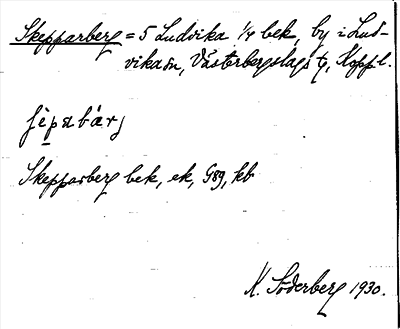 Skepparberg = 5 Ludvika 1/4 bek, by i Lud-
vika sn, Västerbergslags tg, Koppl.
Skepparberg bek, ek, G89, kb
K. Söderberg 1930.